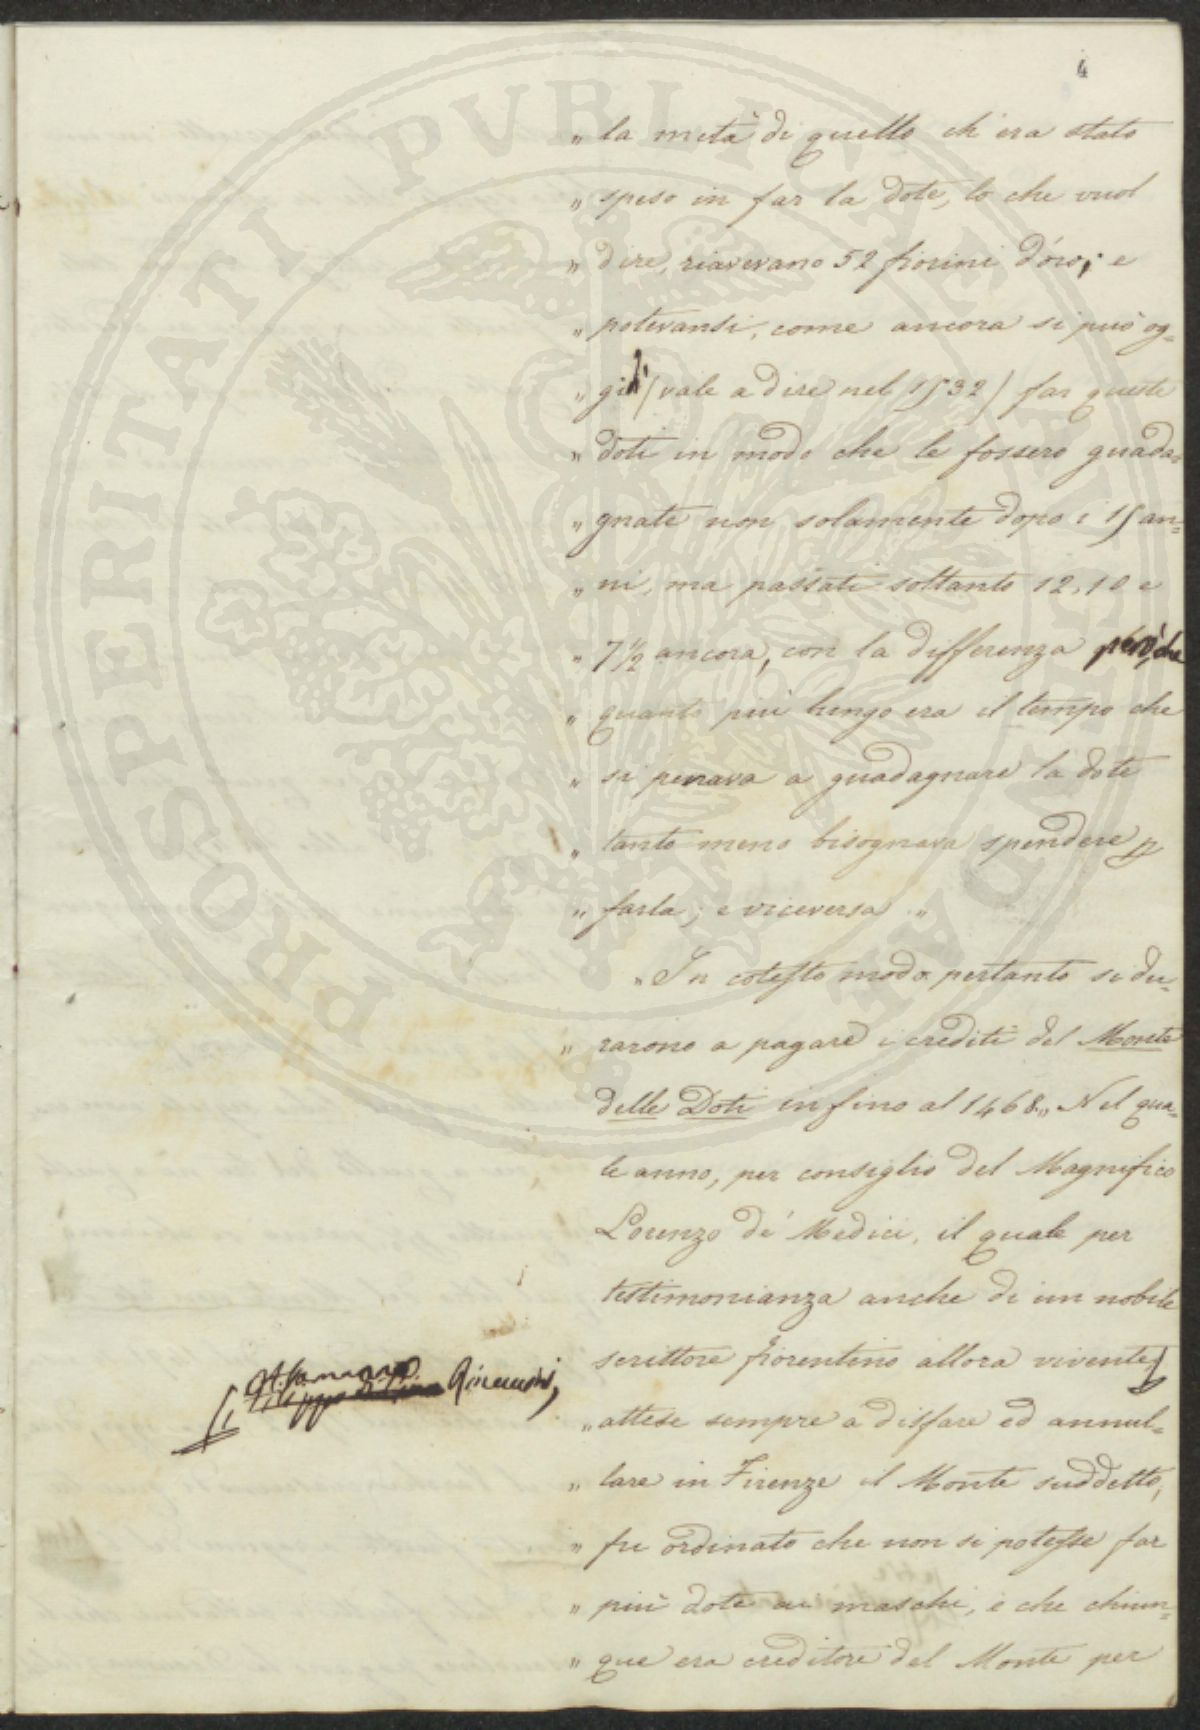 4
„ la metà di quello ch'era stato
„ speso in far la dote, lo che vuol
„ dire, riavevano 52 fiorini d'óro; e
„ potevansi, come ancora si può og-
„ gidì (vale a dire nel 1532) far queste
„ doti in modo che le fossero guada-
„ gnate non solamente dopo i 15 an-
„ ni, ma passati soltanto 12, 10 e
„ 7 1/2 ancora, con la differenza però, che
„ quanto più lungo era il tempo che
„ si penava a guadagnare la dote
„ tanto meno bisognava spendere p
„ farla; e viceversa „
„ In cotesto modo pertanto si du-
„ rarono a pagare i crediti del Monte
delle Doti infino al 1468„ Nel qua-
le anno, per consiglio del Magnifico
Lorenzo de' Medici, il quale per
testimonianza anche di un nobile
scrittore fiorentino allora vivente
Alamanno Rinuccini,
„ attese sempre a disfare ed annul-
„ lare in Firenze il Monte suddetto,
„ fu ordinato che non si potesse far
„ più dote ai maschi, e che chiun-
„ que era creditore del Monte per
PROSPERITATI PVBLICAE